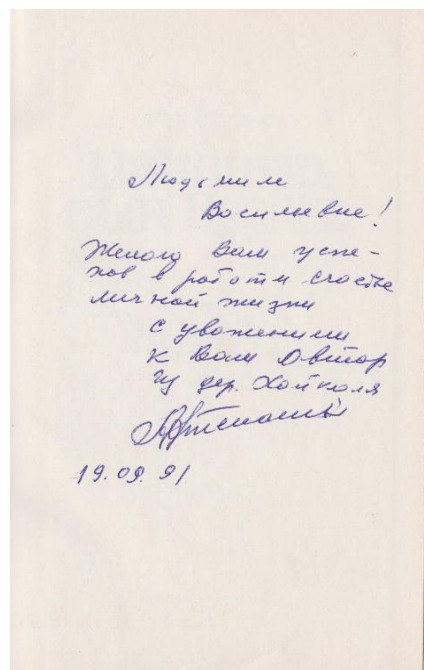 Людмиле
Васильевне!
Желаю Вам успе-
хов в работи счастье
личной жизни
с уважением
к Вам Автор
из дер. Хойкола
19.09.91